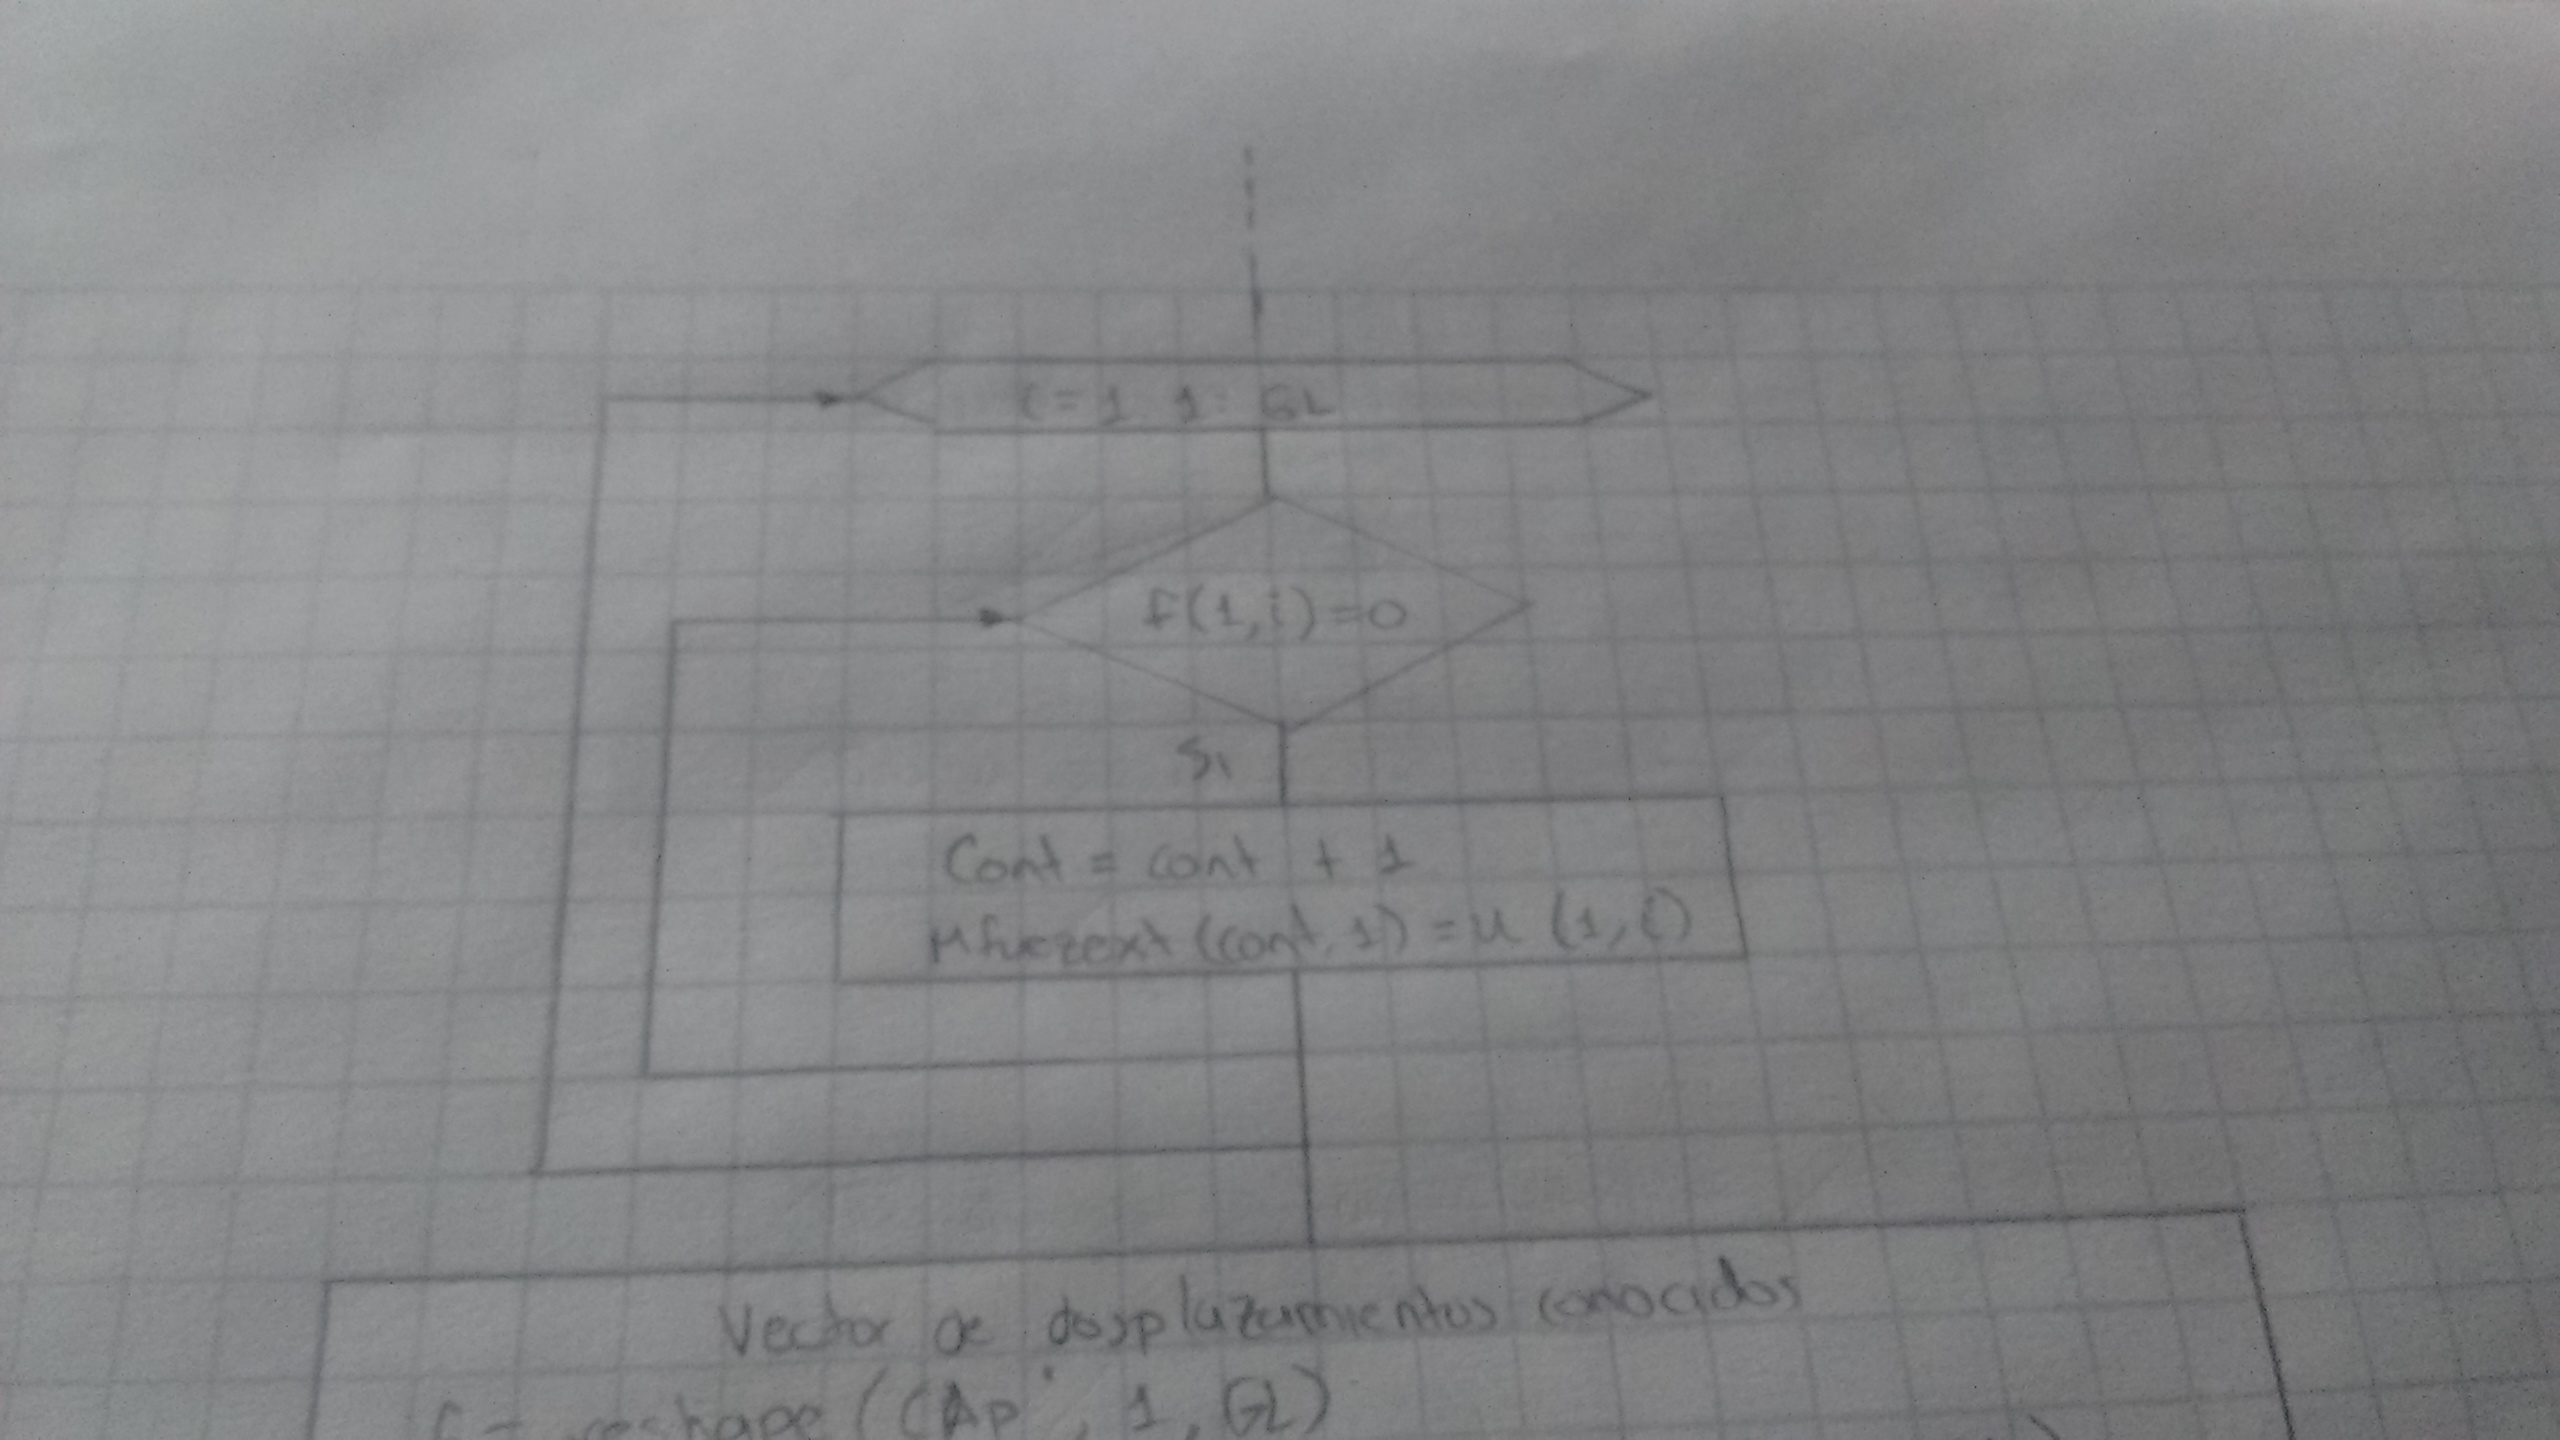 i = 1 1: GL
f(1,i)=0
Si
Cont = cont + 1
Mfuezext (cont, 1) = u (1, i)
Vector de desplazamientos conocidos
f = reshape ((Ap', 1, GL)